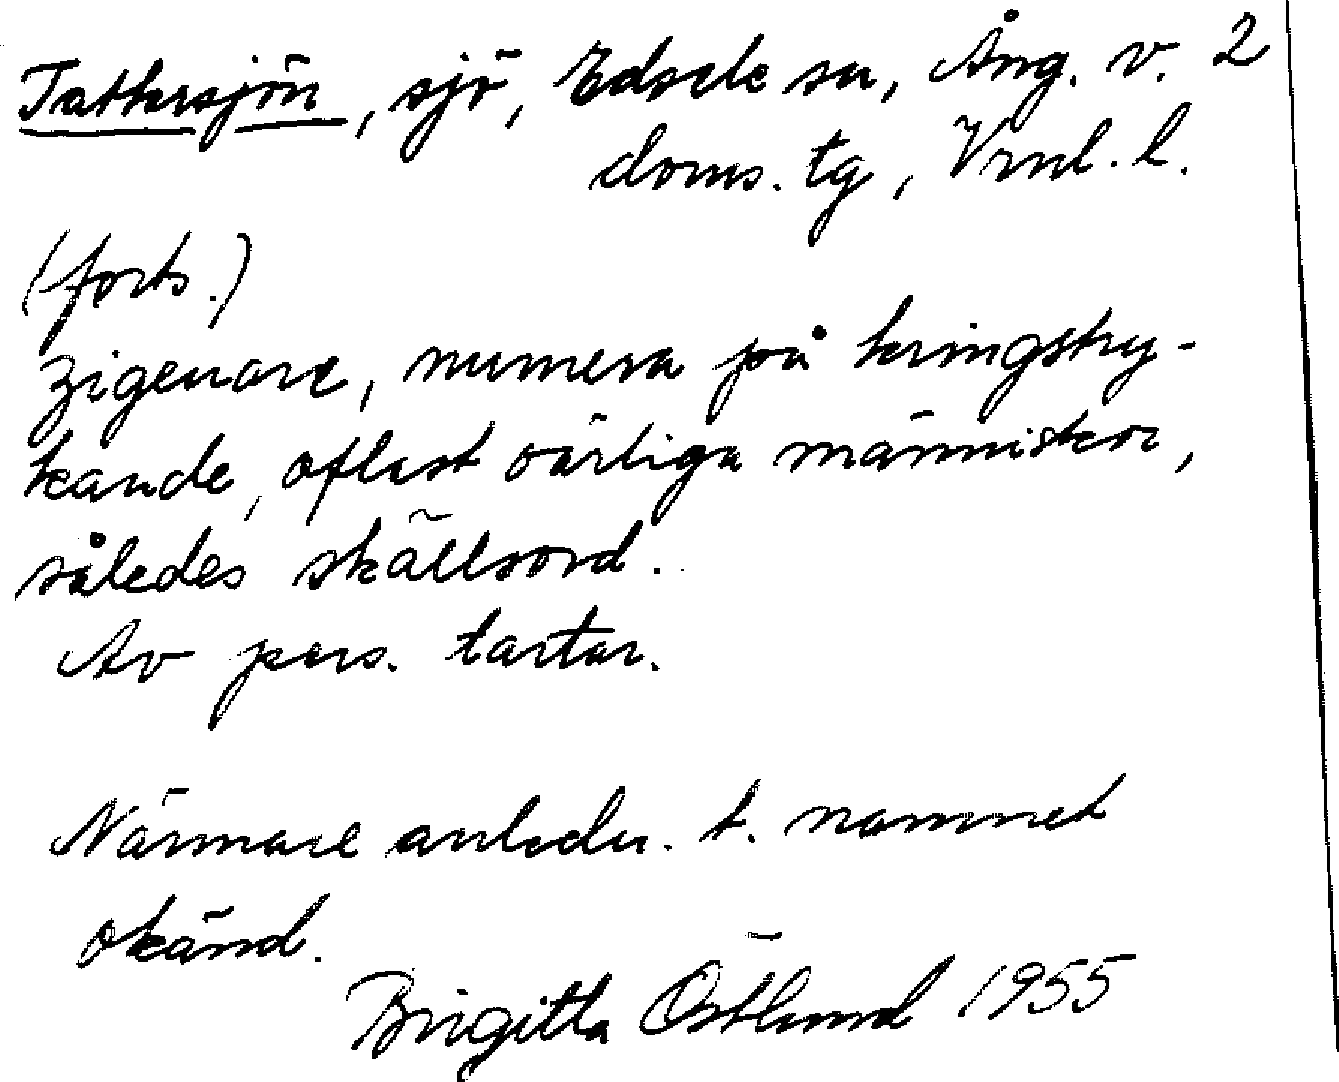 Tattersjön, sjö, Edsele sn, Ång. v. 2
doms. tg, Vrnl. l.
(forts.)
zigenare, numera på kringstry-
kande, oftast oärliga människor,
således skällsord.
Av pers. tartar.
Närmare anledn. t. namnet
okänd.
Birgitta Östlund 1955